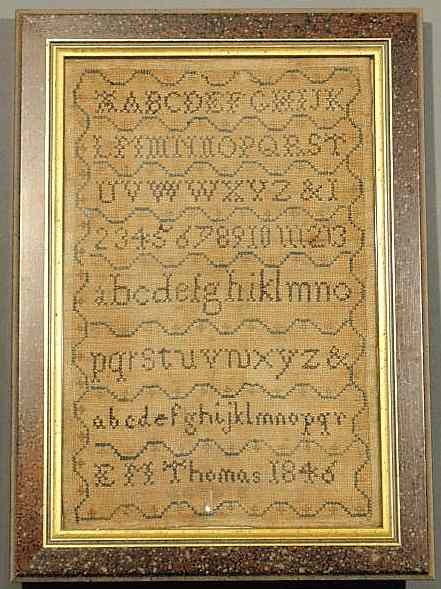 AABCDEFGHIJK
LMMNNOPQRST
UVWWXYZ&1
2 3 4 5 6 7 8 9 10 11 12 13
abcdefghiklmno
pqrstuvwxyz&
abcdefghijklmnopqr
E M Thomas 1846